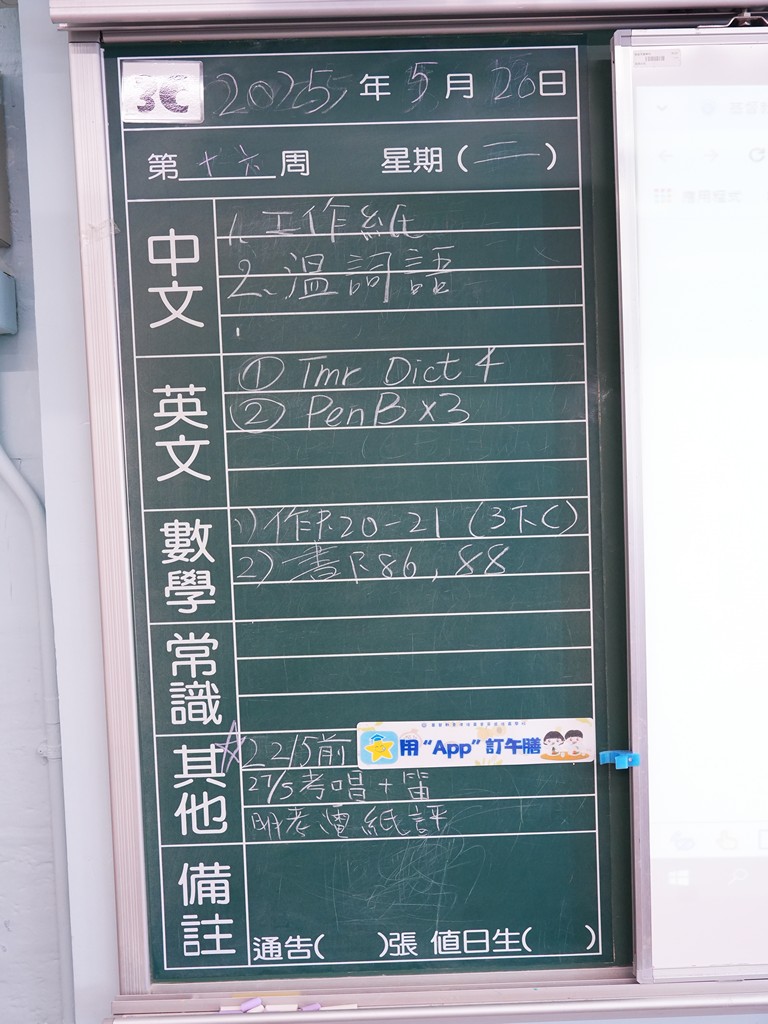 3C 2025年5月20日
第十六周 星期(二)
中文
1. 工作紙
2. 溫詞語
英文
① Tmr Dict 4
② PenB x3
數學
1) 作P.20-21 (3下C)
2) 書P.86, 88
常識
其他
☆22/5前
用“App”訂午膳
27/5考唱+笛
明考電紙評
備註
通告( )張 值日生( )